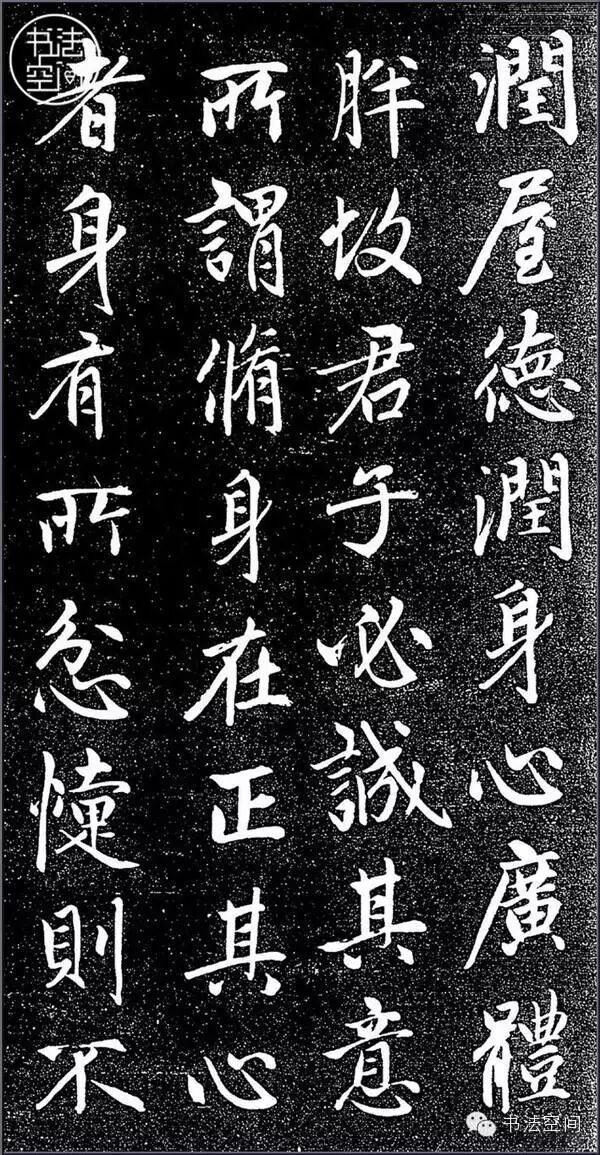 潤屋德潤身心廣體
胖故君子必誠其意
所謂脩身在正其心
者身有所忿懥則不
书法空间
书法空间